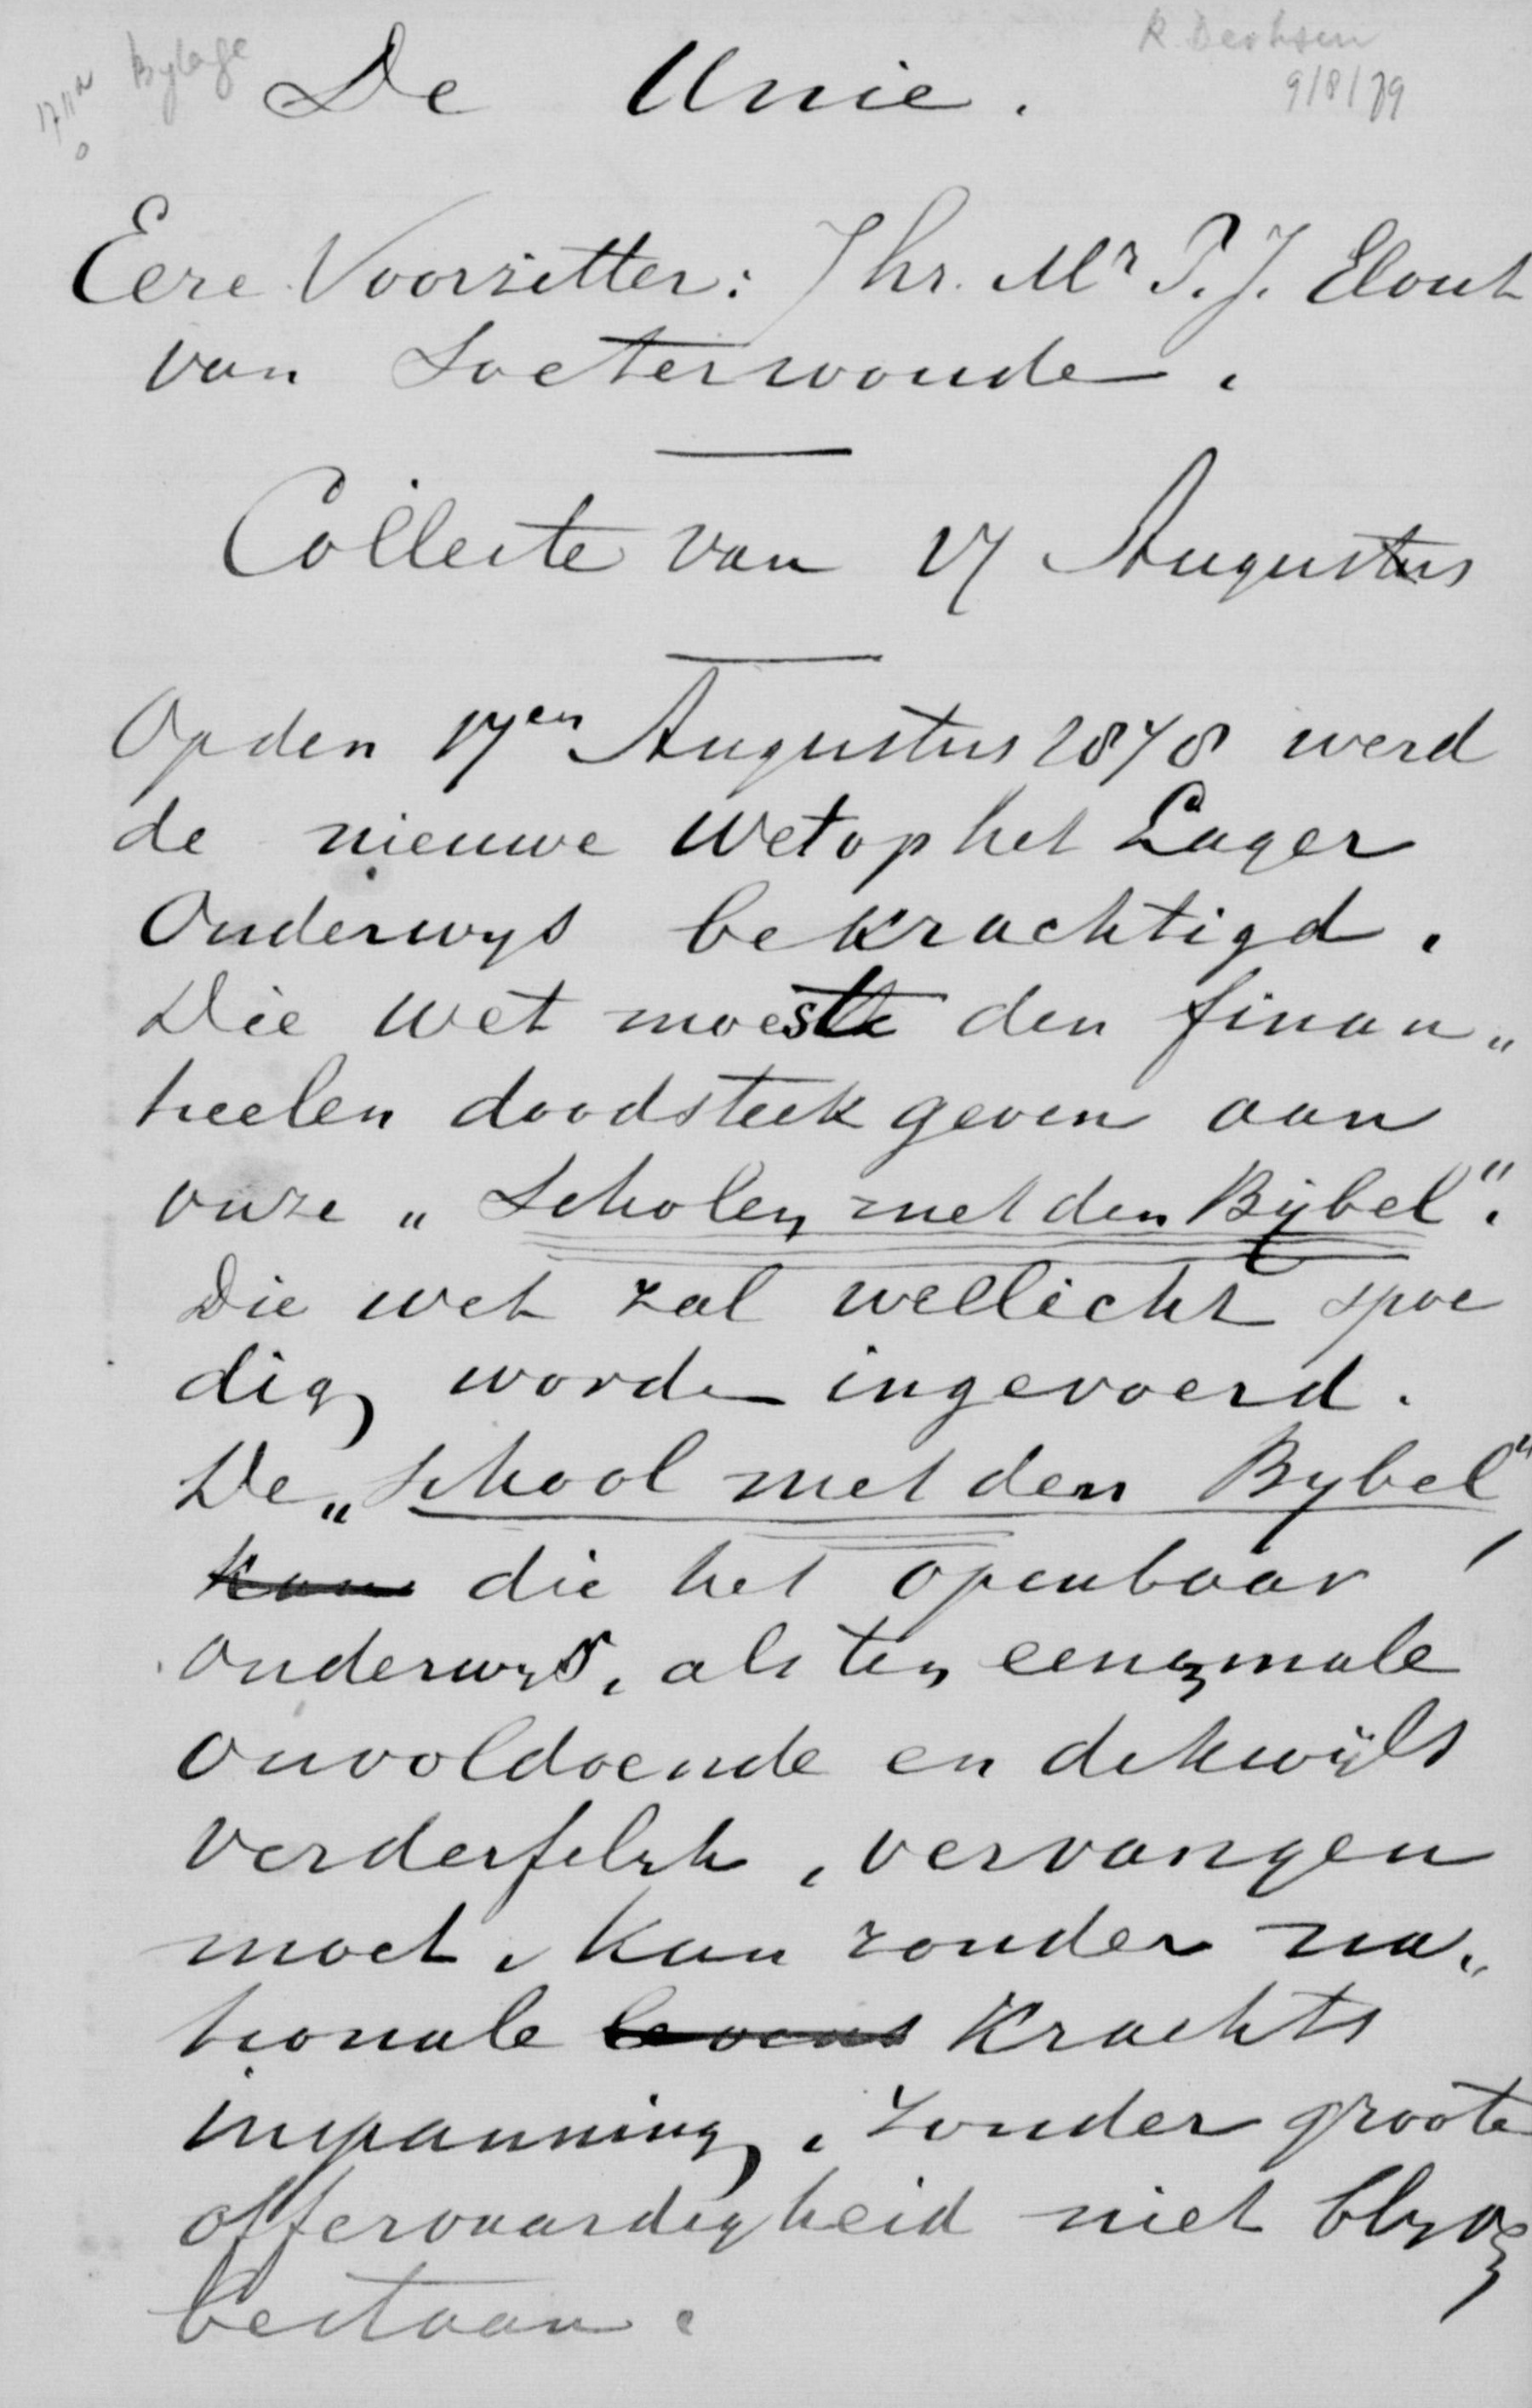 Bylage
R. Derksen
9/8/79
De Unie.
Eere Voorzitter: Jhr. Mr P. J. Elout
van Soeterwoude.
Collecte van 17 Augustus
Op den 17en Augustus 1878 werd
de nieuwe Wet op het Lager
Onderwys bekrachtigd.
Die wet moest den finan„
tieelen doodsteek geven aan
onze „Scholen met den Bijbel".
Die wet zal wellicht spoe
dig worden ingevoerd.
De „School met den Bybel"
kan die het openbaar
onderwys, als ten eenenmale
onvoldoende en dikwijls
verderfelyk, vervangen
moet, kan zonder na„
tionale levens krachts
inspanning, zonder groote
offervaardigheid niet blyven
bestaan.